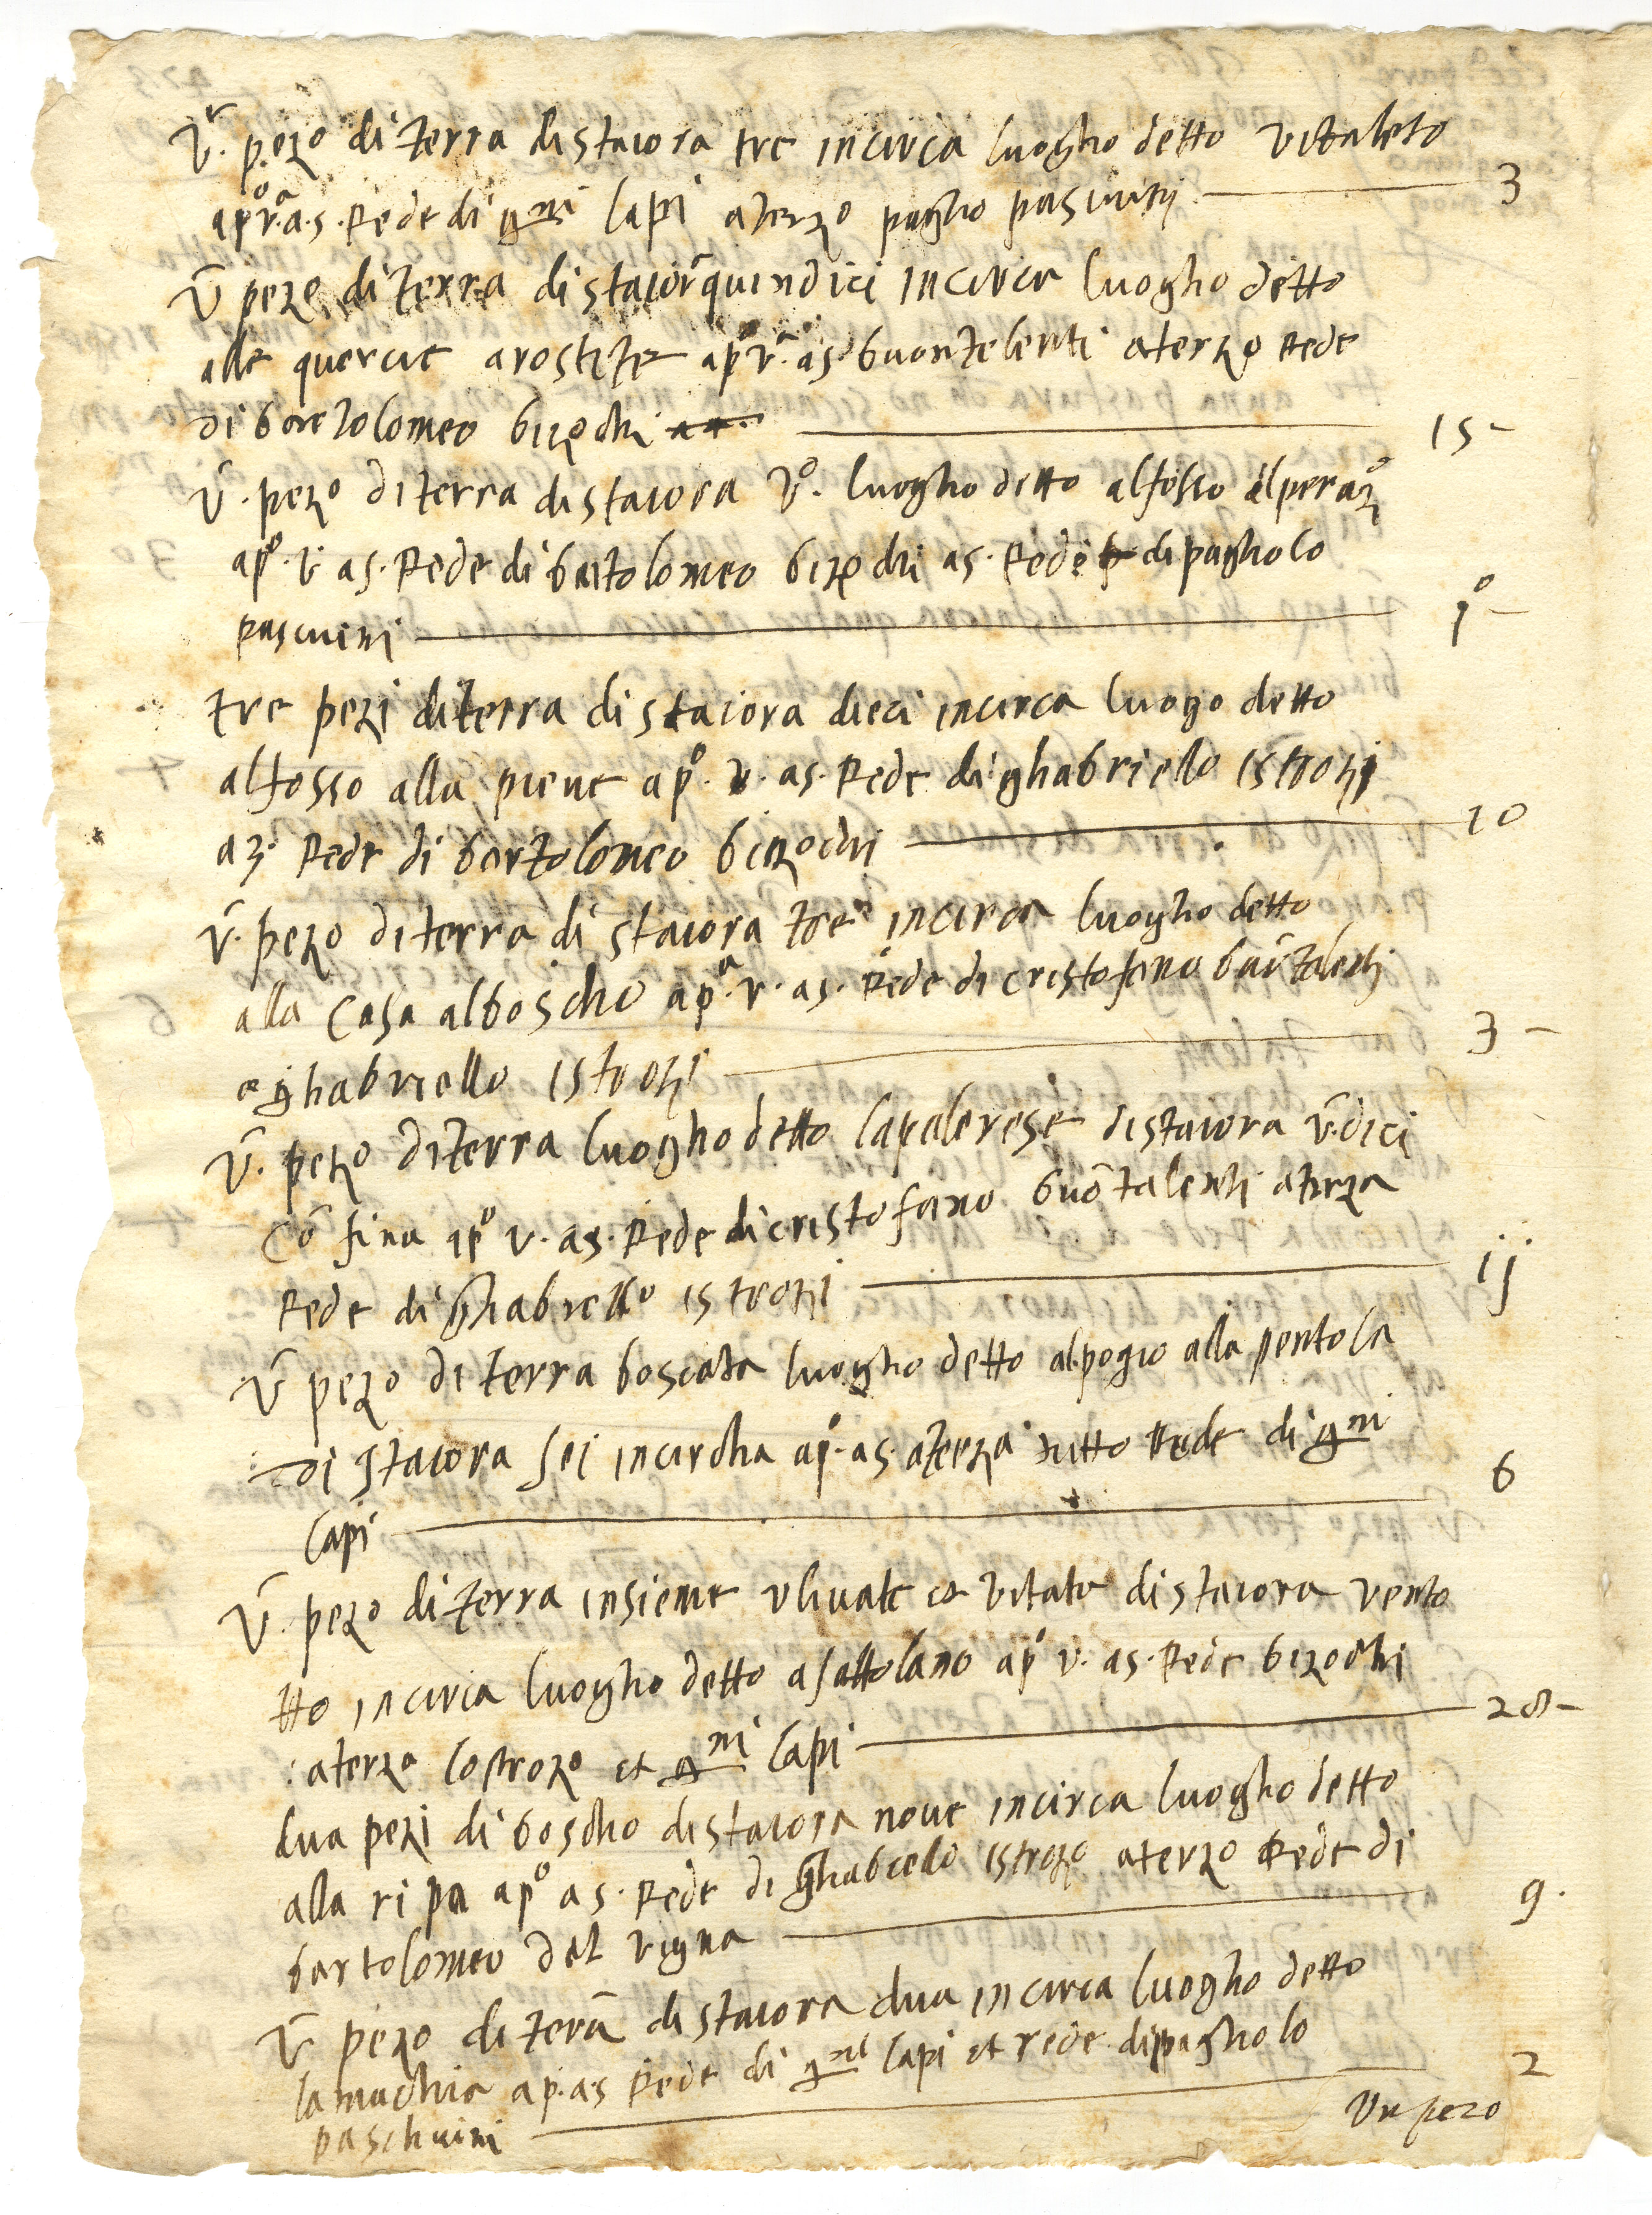 Ū. pezo di terra di staiora tre incirca luogho detto vitaleto
ap.º v.ª a.s. Rede di g.ni lapi aterzo pagho pascuini 3
Ū pezo di terra di staior̄ quindici incirca luogho detto
alle quercie arostite ap.º v.ª as. buontelenti aterzo Rede
di bortolomeo bizochi 15-
Ū. pezo di terra di staiora v.º luogho detto alfosso
ap.º v. as. Rede di bartolomeo bizochi as. Rede di pagholo
pascuini 1º-
tre pezi di terra di staiora dieci incirca luogo detto
alfosso alla pieve ap.º v. as. Rede di ghabriello istrozi
a 3º Rede di bortolomeo bizochi 10
Ū. pezo di terra di staiora tre incirca luogho detto
alla casa alboscho ap.º v. as. Rede di cristofano
e ghabriello istrozi 3-
Ū. pezo di terra luogho detto di staiora ūdici
cōfina ap.º v. as. Rede di cristofano buōtalenti aterza
Rede di ghabriello istrozi ij
Ū pezo di terra boscata luogho detto alpogio alla pentola
di staiora sei incircha ap.º as. aterza tutto Rede di g.ni
lapi 6
Ū. pezo di terra insieme ulivate et vitate di staiora vento
tto incirca luogho detto asattolano ap.º v. as. Rede bizochi
aterza lostrozo et g.ni lapi 28-
dua pezi di boscho di staiora nove incirca luogho detto
alla ripa ap.º as. Rede di ghabrielo istrozo aterzo Rede di
bartolomeo del vigna 9.
Ū pezo di terā di staiora dua incirca luogho detto
lamachia ap. as Rede di g.ni lapi et rede di pagholo
paschuini 2
Un pezo